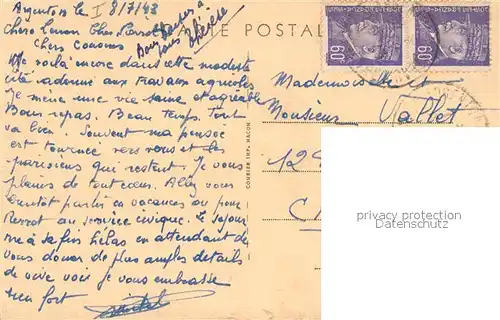 Argenton le I 8/7/43
Bons baisers à tous Thérèse
Chère Simon Cher Pierrot
Chers Cousins
Me voilà encore dans cette modeste
cité adonné aux travaux agricoles
Je mène une vie saine et agréable
Bons repas. Beau temps. Tout
va bien. Souvent ma pensée
est tournée vers vous et les
parisiens qui restent. Je vous
plains de tout cœur. Allez vous
bientôt partir en vacances ou pour
Pierrot au service civique. Le séjour
tire à sa fin hélas en attendant de
vous donner de plus amples détails
de vive voix je vous embrasse
bien fort
CARTE POSTALE
Mademoiselle et
Monsieur Vallet
12
C
COURIER IMP. MACON
60
60
privacy protection
Datenschutz